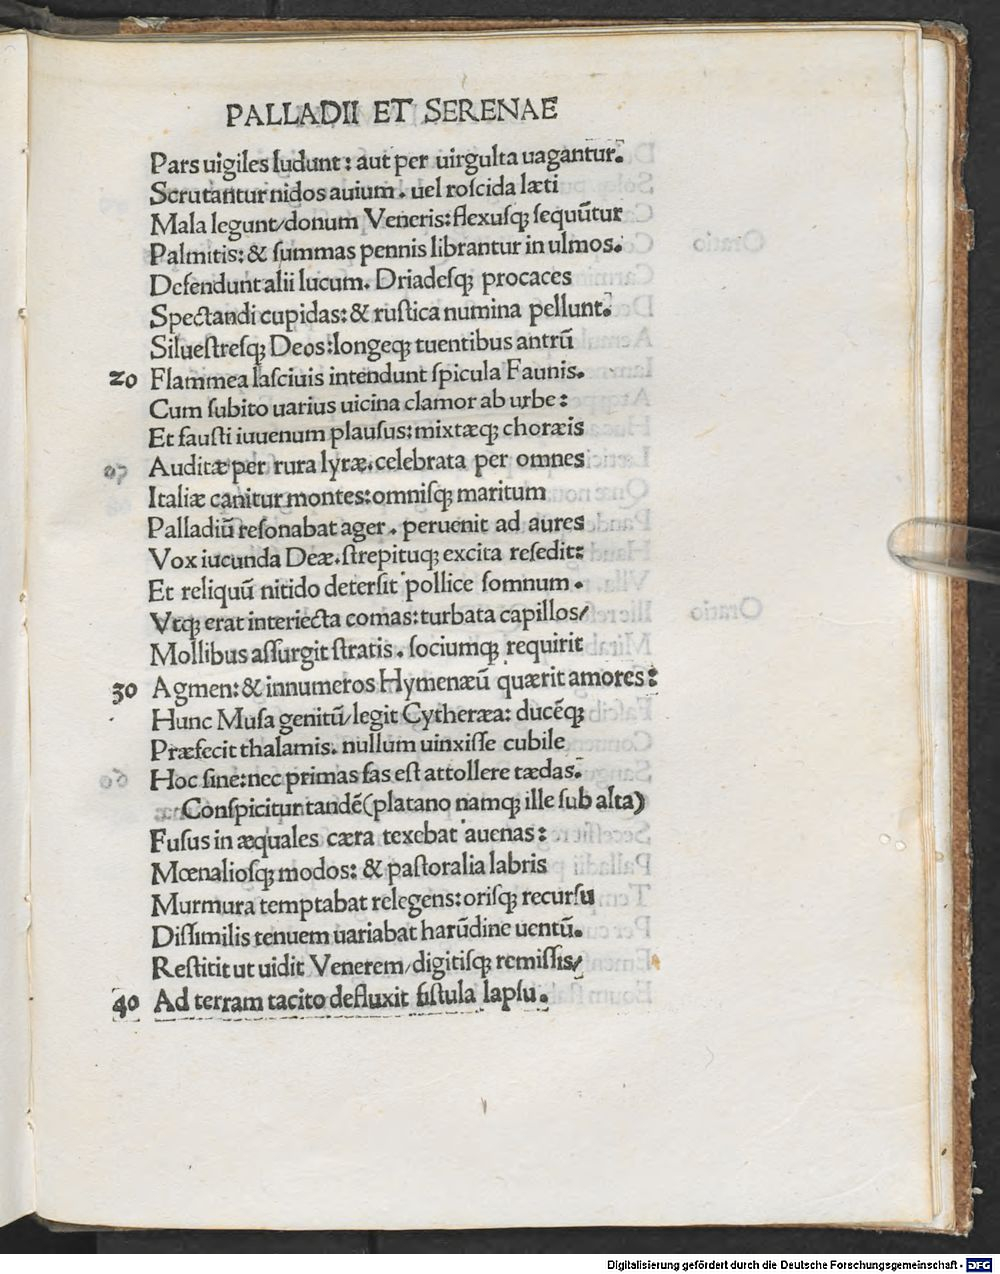 PALLADII ET SERENAE
Pars uigiles ludunt: aut per uirgulta uagantur.
Scrutantur nidos auium. uel roſcida læti
Mala legunt/donum Veneris: flexuſqꝫ ſequūtur
Palmitis: & ſummas pennis librantur in ulmos.
Defendunt alii lucum. Driadeſqꝫ procaces
Spectandi cupidas: & ruſtica numina pellunt.
Silueſtreſqꝫ Deos: longeqꝫ tuentibus antrū
20 Flammea laſciuis intendunt ſpicula Faunis.
Cum ſubito uarius uicina clamor ab urbe:
Et fauſti iuuenum plauſus: mixtæqꝫ choræis
Auditæ per rura lyræ. celebrata per omnes
Italiæ canitur montes: omniſqꝫ maritum
Palladiū reſonabat ager. peruenit ad aures
Vox iucunda Deæ. ſtrepituqꝫ excita reſedit:
Et reliquū nitido deterſit pollice ſomnum.
Vtqꝫ erat interiecta comas: turbata capillos/
Mollibus aſſurgit ſtratis. ſociumqꝫ requirit
30 Agmen: & innumeros Hymenæū quærit amores:
Hunc Muſa genitū/legit Cytheræa: ducēqꝫ
Præfecit thalamis. nullum uinxiſſe cubile
Hoc ſine: nec primas fas eſt attollere tædas.
Conſpicitur tandē (platano namqꝫ ille ſub alta)
Fuſus in æquales cæra texebat auenas:
Mœnalioſqꝫ modos: & paſtoralia labris
Murmura temptabat relegens: oriſqꝫ recurſu
Diſſimilis tenuem uariabat harūdine uentū.
Reſtitit ut uidit Venerem/digitiſqꝫ remiſſis/
40 Ad terram tacito defluxit fiſtula lapſu.
Digitalisierung gefördert durch die Deutsche Forschungsgemeinschaft - DFG